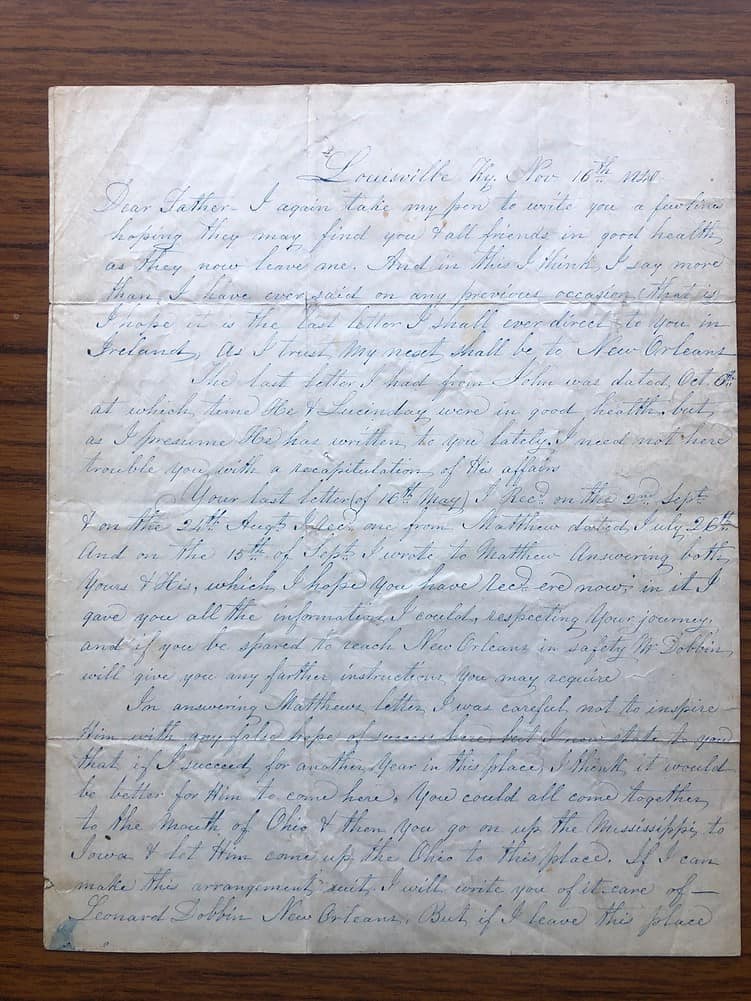 Louisville Ky. Nov 16th 1840
Dear Father - I again take my pen to write you a few lines
hoping they may find you & all friends in good health,
as they now leave me. And in this I think I say more
than I have ever said on any previous occasion, that is
I hope it is the last letter I shall ever direct to you in
Ireland, as I trust my next shall be to New Orleans
The last letter I had from John was dated Oct. 6th
at which time He & Lucinday were in good health, but
as I presume He has written to you lately, I need not here
trouble you with a recapitulation of His affairs
Your last letter (of 16th May) I Recd on the 2nd Sept
& on the 24th Augt I Recd one from Matthew dated July 26th
And on the 15th of Sept I wrote to Matthew Answering both
Yours & His, which I hope you have Recd ere now; in it I
gave you all the information I could respecting Your journey,
and if you be spared to reach New Orleans in safety Mr Dobbin
will give you any farther instructions you may require
In answering Matthews letter I was careful not to inspire
Him with any false hope of success here, but I now state to you
that if I succeed for another Year in this place, I think it would
be better for Him to come here. You could all come together
to the Mouth of Ohio & then you go on up the Mississippi to
Iowa & let Him come up the Ohio to this place. If I can
make this arrangement suit I will write you of it care of —
Leonard Dobbin New Orleans. But if I leave this place